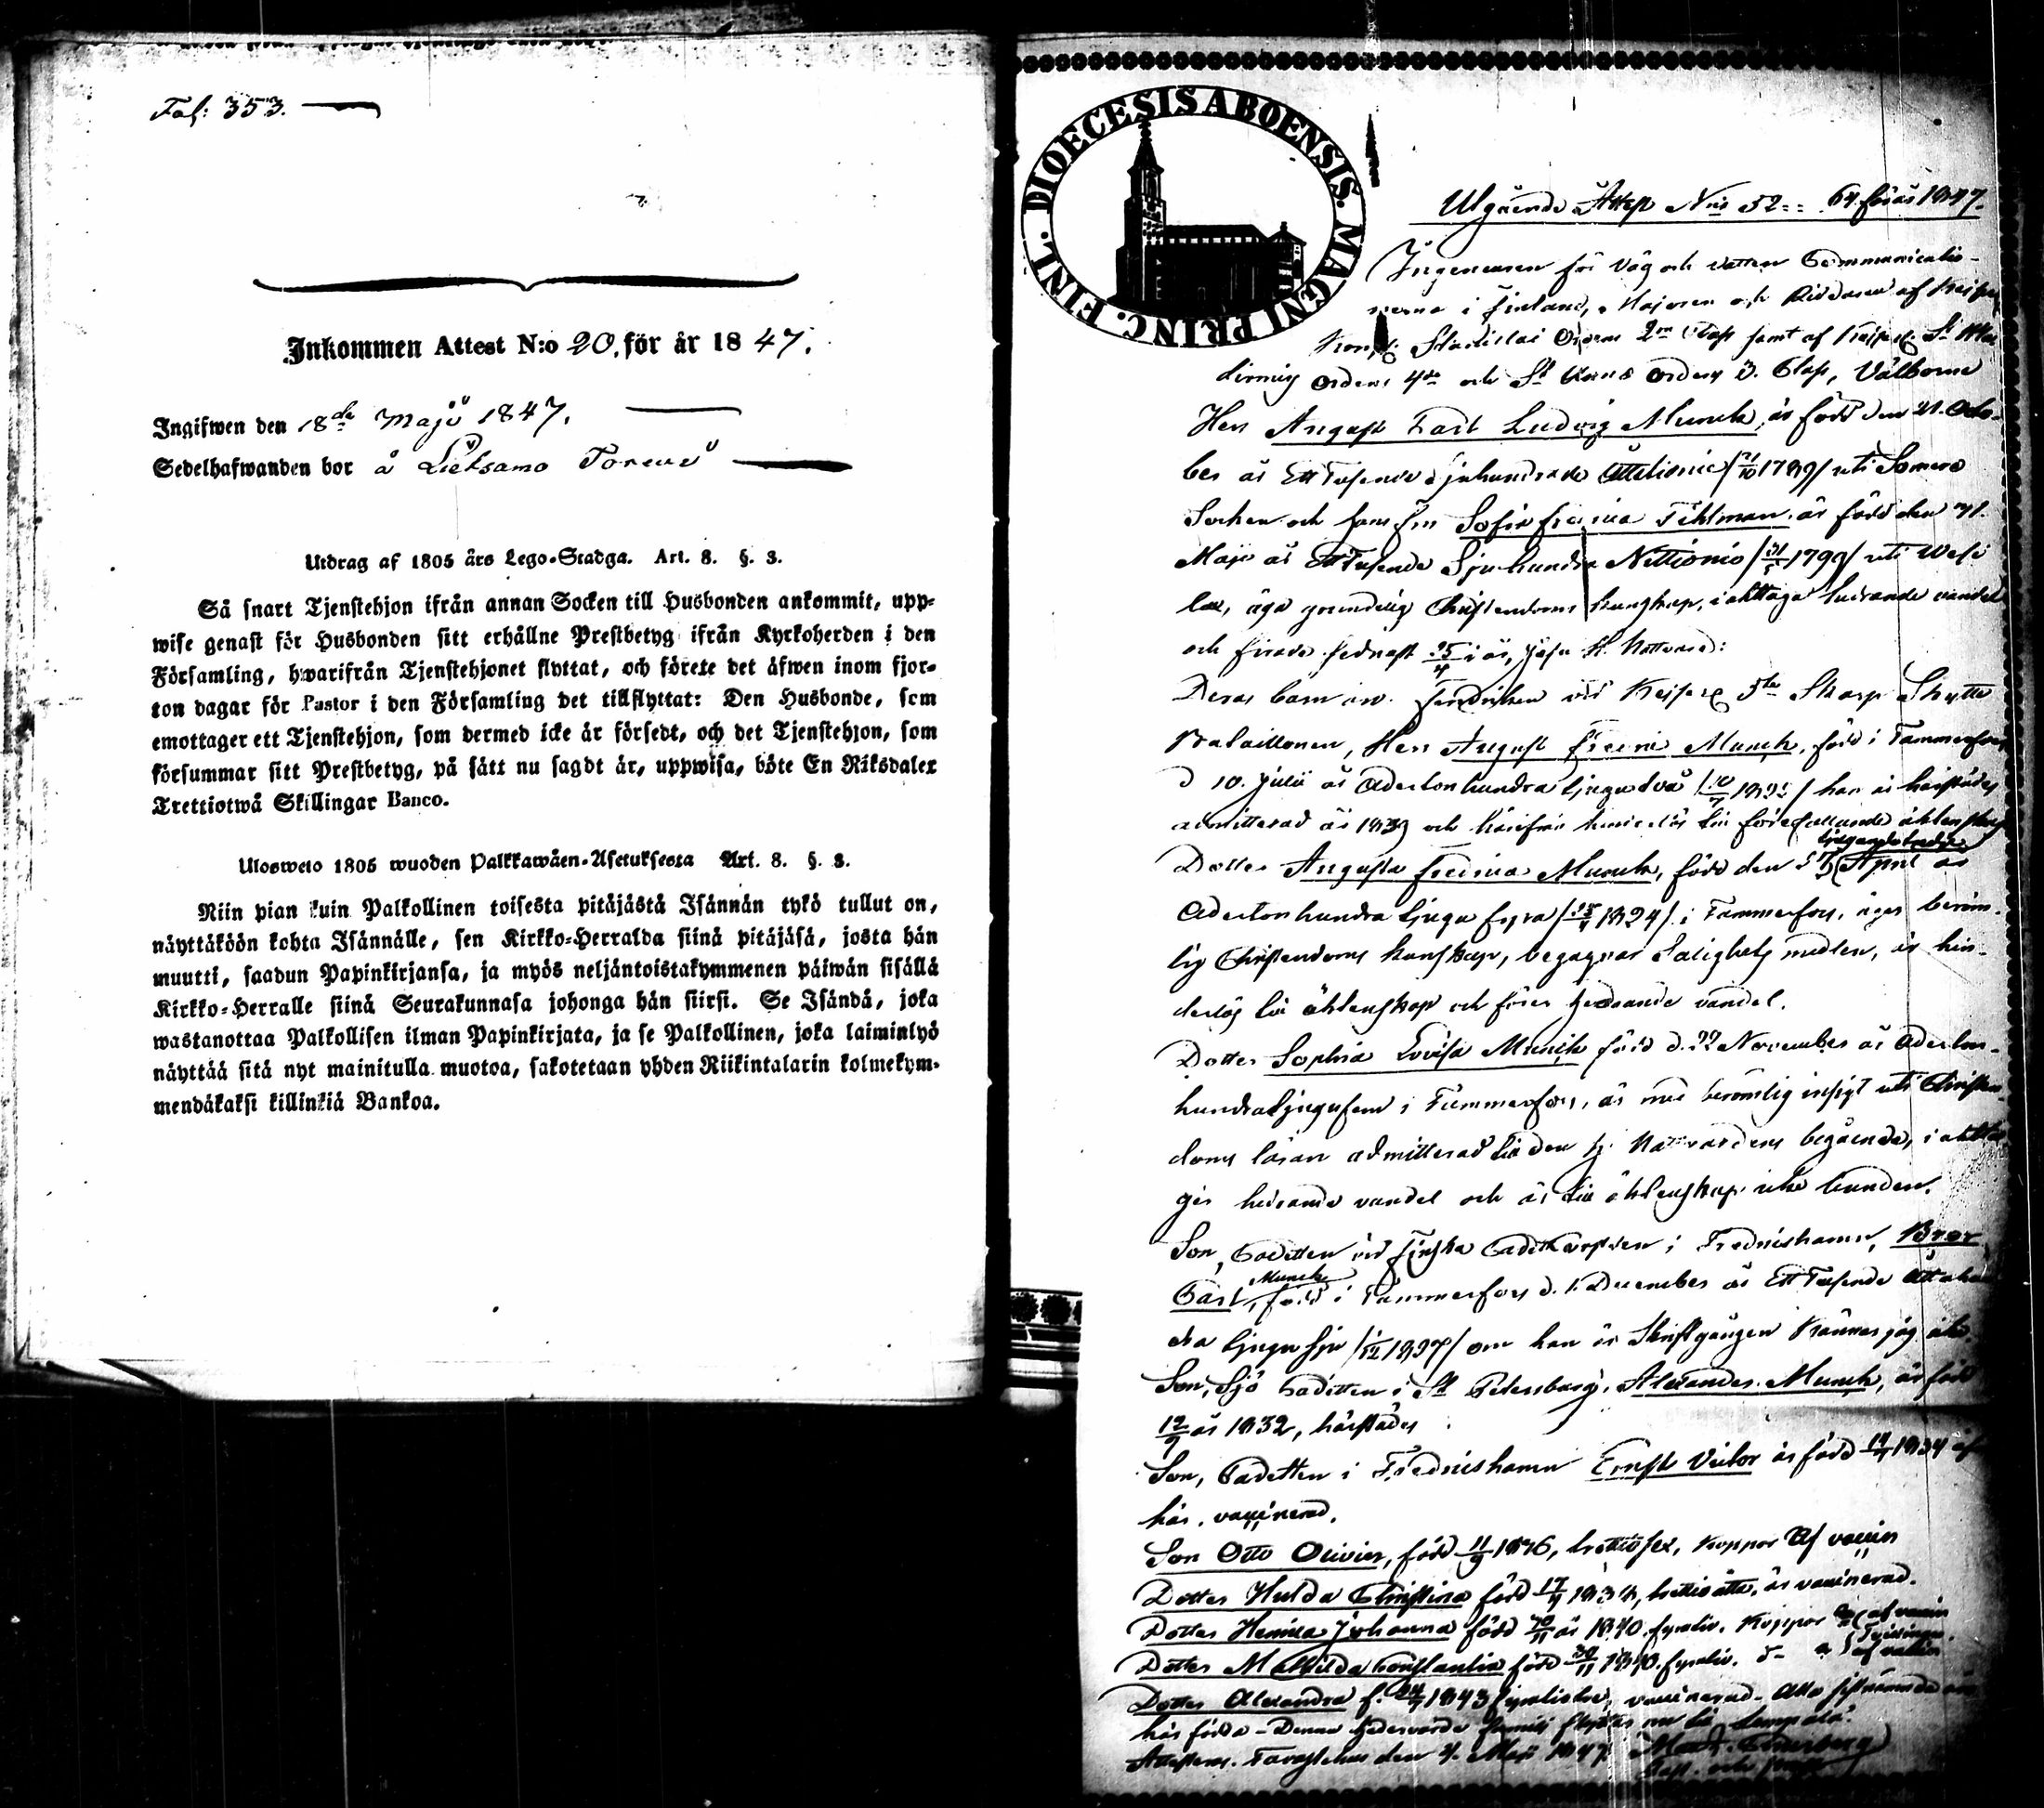 Fol: 353.
Inkommen Attest N:o 20, för år 1847.
Ingifwen den 18de Maji 1847.
Sedelhafwanden bor å Lietsamo Torew
Utdrag af 1805 års Lego-Stadga. Art. 8. §. 3.
Så snart Tjenstehjon ifrån annan Socken till Husbonden ankommit, upp-
wise genast för Husbonden sitt erhållne Prestbetyg ifrån Kyrkoherden i den
Församling, hwarifrån Tjenstehjonet flyttat, och förete det äfwen inom fjor-
ton dagar för Pastor i den Församling det tillflyttat: Den Husbonde, som
emottager ett Tjenstehjon, som dermed icke är försedt, och det Tjenstehjon, som
försummar sitt Prestbetyg, på sätt nu sagdt är, uppwisa, böte En Riksdaler
Trettiotwå Skillingar Banco.
Ulosweto 1805 wuoden Palkkawäen-Asetuksesta Art. 8. §. 3.
Niin pian kuin Palkollinen toisesta pitäjästä Isännän tykö tullut on,
näyttäköön kohta Isännälle, sen Kirkko-Herralda siinä pitäjäsä, josta hän
muutti, saadun Papinkirjansa, ja myös neljäntoistakymmenen päiwän sisällä
Kirkko-Herralle siinä Seurakunnasa johonga hän siirsi. Se Isändä, joka
wastanottaa Palkollisen ilman Papinkirjata, ja se Palkollinen, joka laiminlyö
näyttää sitä nyt mainitulla muotoa, sakotetaan yhden Riikintalarin kolmekym-
mendäkaksi killinkiä Bankoa.
DIOECESIS ABOENSIS. MAGNI PRINC. FINL.
Utgående Attest N:ris 52 = 64 för år 1847.
Ingeneuren för Väg och Vatten Communicatio-
nerna i Finland, Majoren och Riddaren af Kejser
Kongl. Stanislai Ordens 2ra Class samt af Kejserl. St Wla-
dimirs Ordens 4de och St Annæ Ordens 3. Class, Välborne
Herr August Carl Ludvig Munck, är född den 21. Octo-
ber år Ett Tusende Sjuhundrade Åttetionio /21/10 1789/ uti Somero
Socken och hans fru Sofia Fredrica Tihlman är född den 31.
Maji år Ett Tusende Sjuhundra Nittionio /31/5 1799/ uti Wesi
lax, äga grundelig Christendoms kunskap, iakttaga hedrande vandel
och firade sednast 25/4 i år, Jesu H. Nattvard:
Deras barn äro Fendricken vid Kejserl 5te Skarp Skytte
Bataillonen, Herr August Fredric Munck, född i Tammerfors
d 10. Julii år Adertonhundra tjugutvå /10/7 1822/ han är härstädes
admitterad år 1839 och härifrån hinderlös till förefallande äktenskap
Dotter Augusta Fredrica Munck, född den 25 (tjugondefemte) April år
Adertonhundra tjugu fyra /25/4 1824/ i Tammerfors, äger beröm-
lig Christendoms kunskap, begagnar Salighets medlen, är hin-
derlös till äktenskap och förer hedrande vandel.
Dotter Sophia Lovisa Munck född d. 22 November år Aderton-
hundratjugufem i Tammerfors, är med berömlig insigt uti Christen
doms läran admitterad till den H. Nattvardens begående, iaktta
ger hedrande vandel och är till äktenskap icke bunden.
Son, Cadetten vid Finska Cadettcorpsen i Fredrickshamn, Bror
Carl Munck, född i Tammerfors d. 1. December år Ett Tusende Åttahun
dra tjugu sju /1/12 1827/ om han är Skriftgången känner jag icke
Son, Sjö Cadetten i St Petersburg, Alexander Munck, är född
12/9 år 1832, härstädes
Son, Cadetten i Fredrickshamn Ernst Victor är född 14/4 1834
här, vaccinerad.
Son Otto Olivier, född 11/9 1836, trettiosex, Koppor af vaccin
Dotter Hulda Christina född 17/4 1838, trettioåtta, är vaccinerad.
Dotter Henrica Johanna född 30/11 år 1840. fyratio. Koppor af vaccin
Dotter Mathilda Constantia född 30/11 1840. fyratio. d- af vaccin
Dotter Alexandra f. 24/7 1843 fyratiotre, vaccinerad. Alla sistnämnda äro
här födda - Denna hedervärda familj flyttar nu till Lempälä.
Attesteras. Tavastehus den 4. Maji 1847